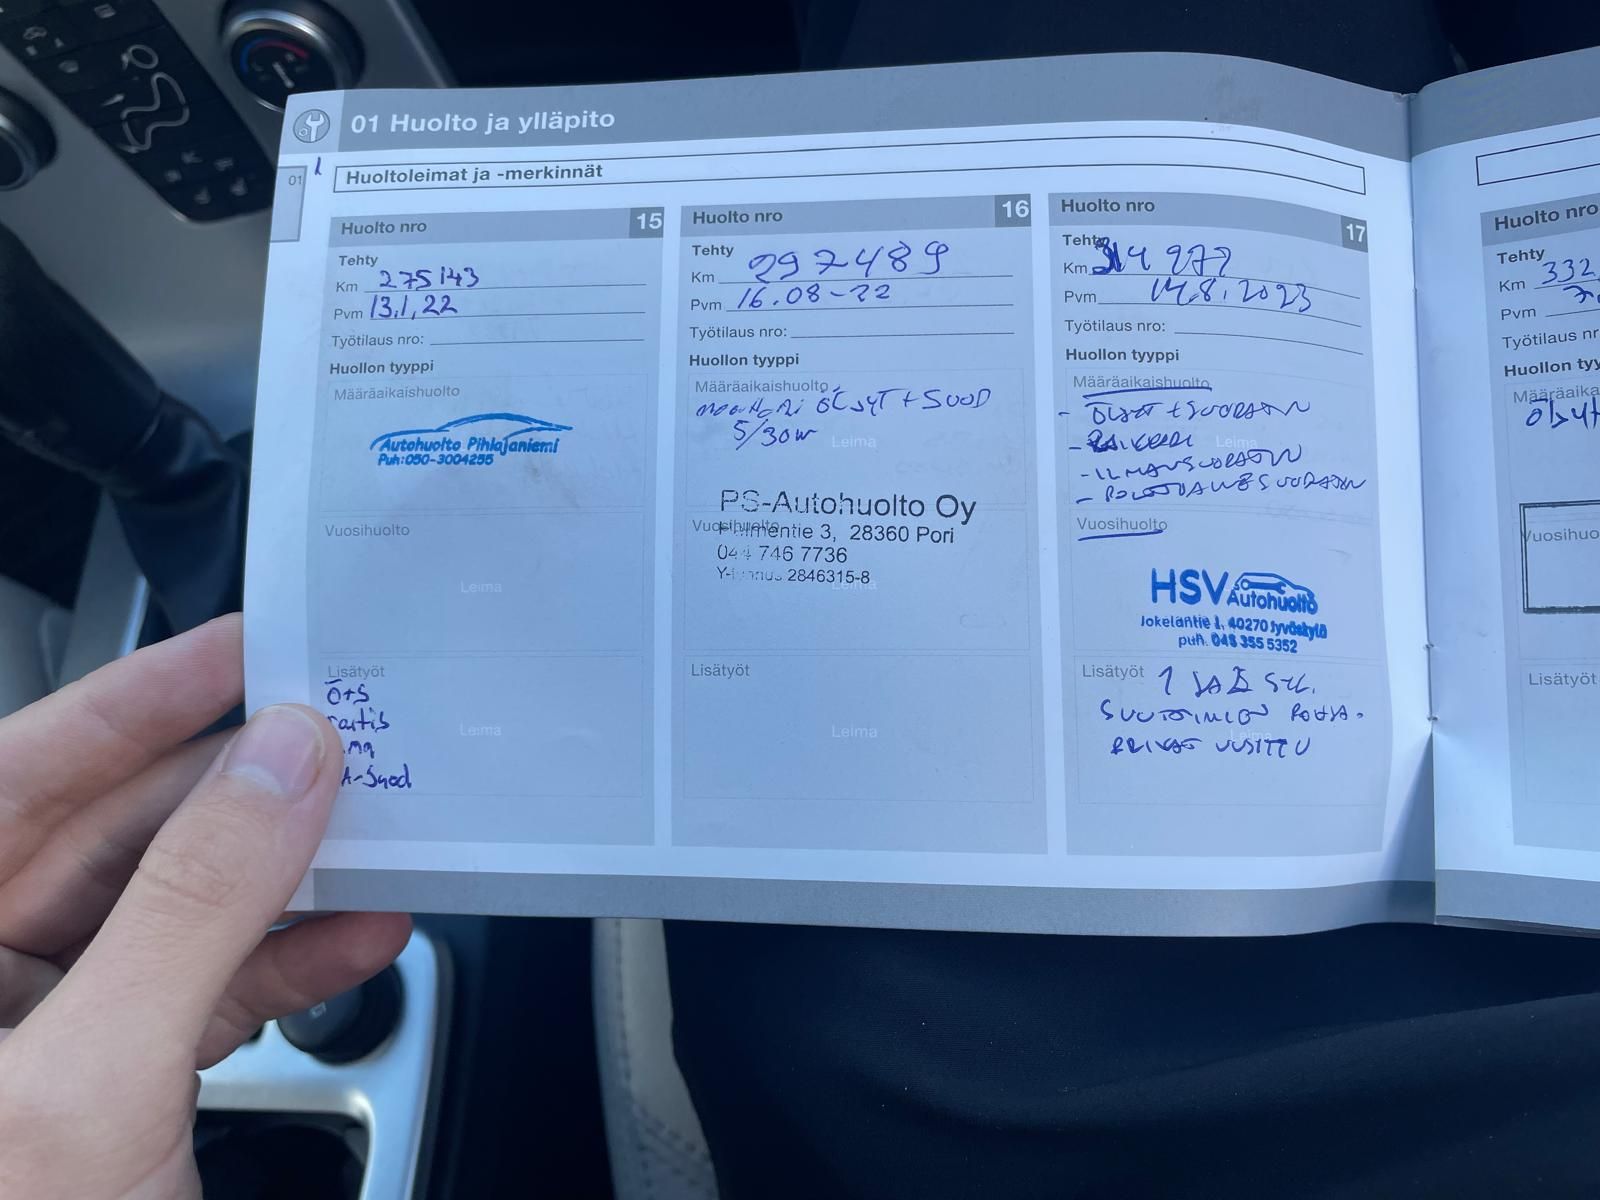 01 Huolto ja ylläpito
01
Huoltoleimat ja -merkinnät
Huolto nro 15
Tehty
Km 275143
Pvm 13.1.22
Työtilaus nro:
Huollon tyyppi
Määräaikaishuolto
Autohuolto Pihlajaniemi
Puh:050-3004255
Vuosihuolto
Leima
Lisätyöt
Ö+S
Leima
Huolto nro 16
Tehty
Km 297489
Pvm 16.08-22
Työtilaus nro:
Huollon tyyppi
Määräaikaishuolto
moottori öljyt + SUOD
5/30w
Leima
PS-Autohuolto Oy
Vuosihuolto
3, 28360 Pori
044 746 7736
2846315-8
Leima
Lisätyöt
Leima
Huolto nro 17
Tehty
Km 314 977
Pvm 14.8.2023
Työtilaus nro:
Huollon tyyppi
Määräaikaishuolto
- ÖLJYT + SUODATIN
Leima
- ILMANSUODATIN
Vuosihuolto
HSV Autohuolto
Jokelantie 1, 40270 Jyväskylä
puh. 045 355 5352
Lisätyöt 1 JA 2 SYL.
SUUTTIMIEN POHJA-
RIKAT UUSITTU
Leima
Huolto nro
Tehty
Km 332
Pvm
Työtilaus nr
Huollon tyy
Määräaika
Vuosihuo
Lisätyöt